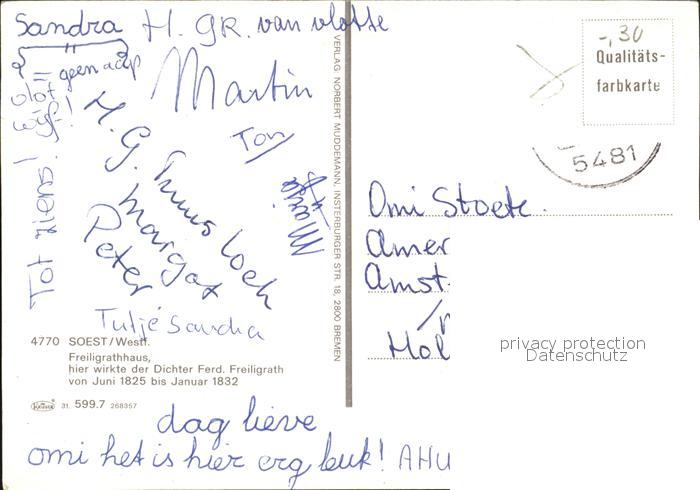 Sandra
H. GR. van vlotte
geen aap
vlot
wijf!
Martin
Ton
Maria
H. G. Truus Loek
Margot
Peter
Tot ziens!
Tutje Sandra
4770 SOEST/Westf.
Freiligrathhaus,
hier wirkte der Dichter Ferd. Freiligrath
von Juni 1825 bis Januar 1832
31. 599.7 268357
dag lieve
omi het is hier erg leuk! AHU
VERLAG NORBERT MUDDEMANN, INSTERBURGER STR. 18, 2800 BREMEN
-,30
Qualitäts-
farbkarte
5481
Omi Stoete.
Amer
Amst.
Hol
privacy protection
Datenschutz